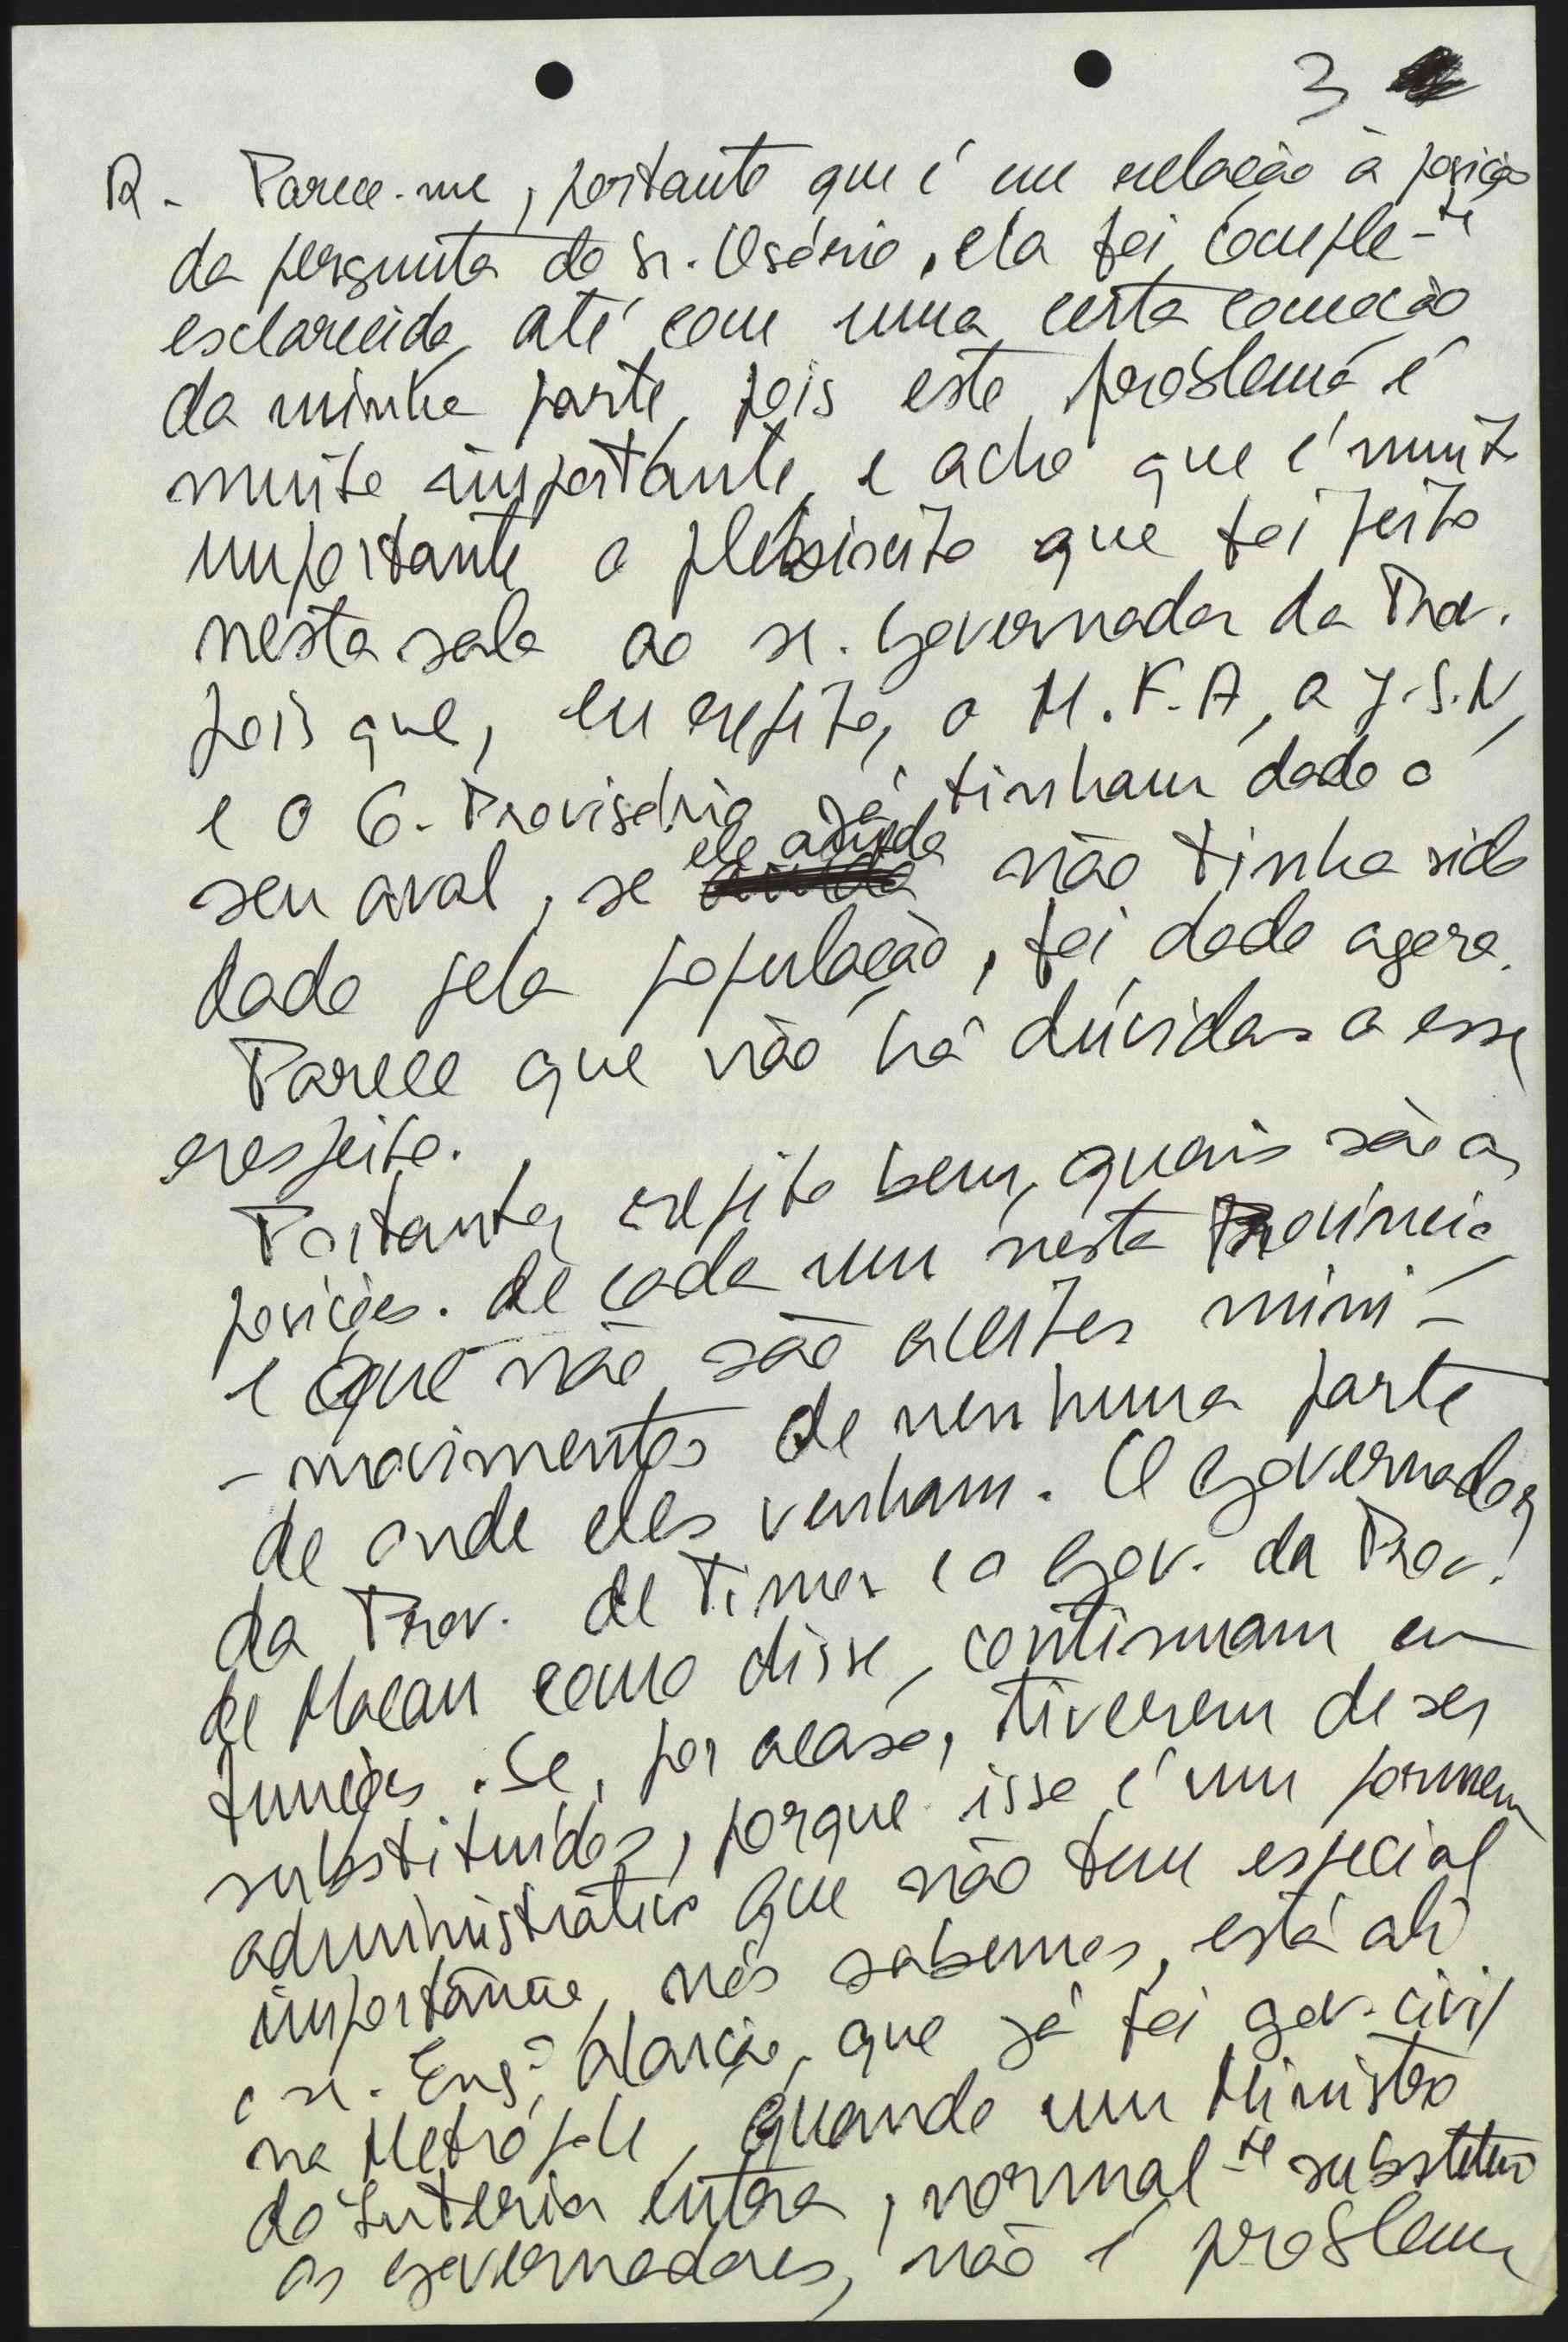 3
R - Parece-me, portanto que é em relação à posição
da pergunta do Sr. Osório, ela foi comple-te
esclarecida, até com uma certa comoção
da minha parte, pois este problema é
muito importante, e acho que é muito
importante o plebiscito que foi feito
nesta sala ao sr. Governador da Prov.
pois que, eu repito, o M.F.A, a J.S.N,
e o G. Provisório já tinham dado o
seu aval, se ele ainda não tinha sido
dado pela população, foi dado agora.
Parece que não há dúvidas a esse
respeito.
Portanto, repito bem, quais são as
posições de cada um nesta Província,
e que não são aceites mini-
-movimentos de nenhuma parte
de onde eles venham. O Governador
da Prov. de Timor e o Gov. da Prov.
de Macau como disse, continuam em
funções. Se, por acaso, tiverem de ser
substituídos, porque isso é um pormenor
administrativo que não tem especial
importância, nós sabemos, está ali
o sr. Engº que já foi gov. civil
na Metrópole, quando um Ministro
do Interior entra, normal-te substitui
os governadores, não é problema